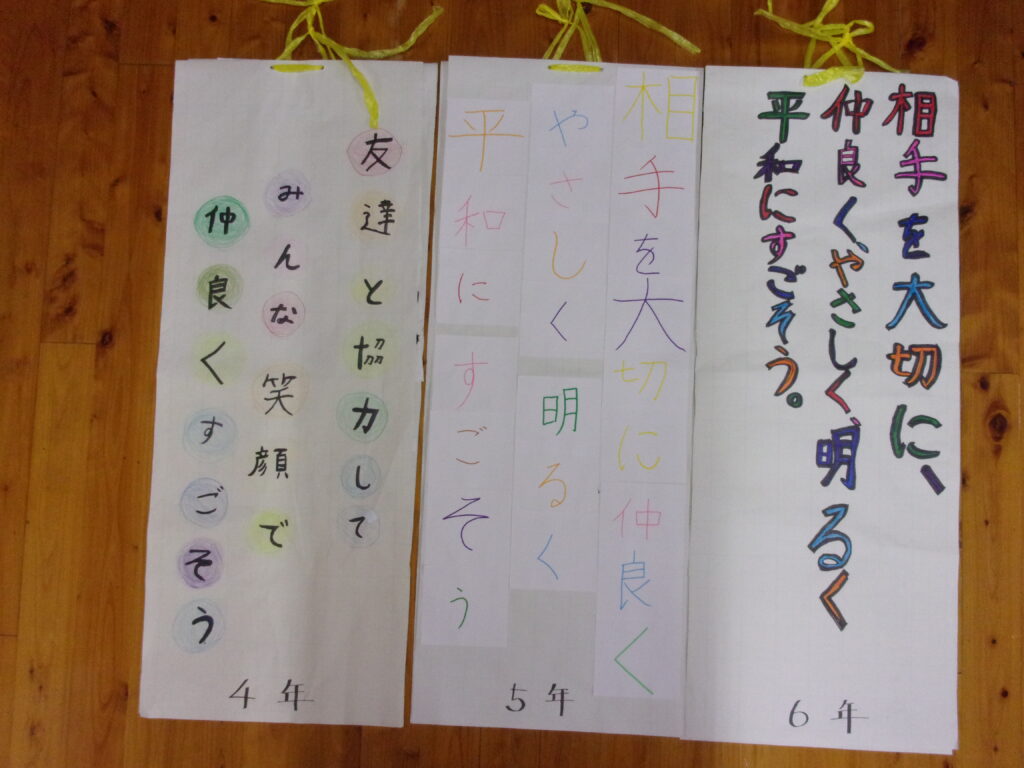 相手を大切に、
仲良く、やさしく、明るく
平和にすごそう。
6年
相手を大切に仲良く
やさしく明るく
平和にすごそう
5年
友達と協力して
みんな笑顔で
仲良くすごそう
4年